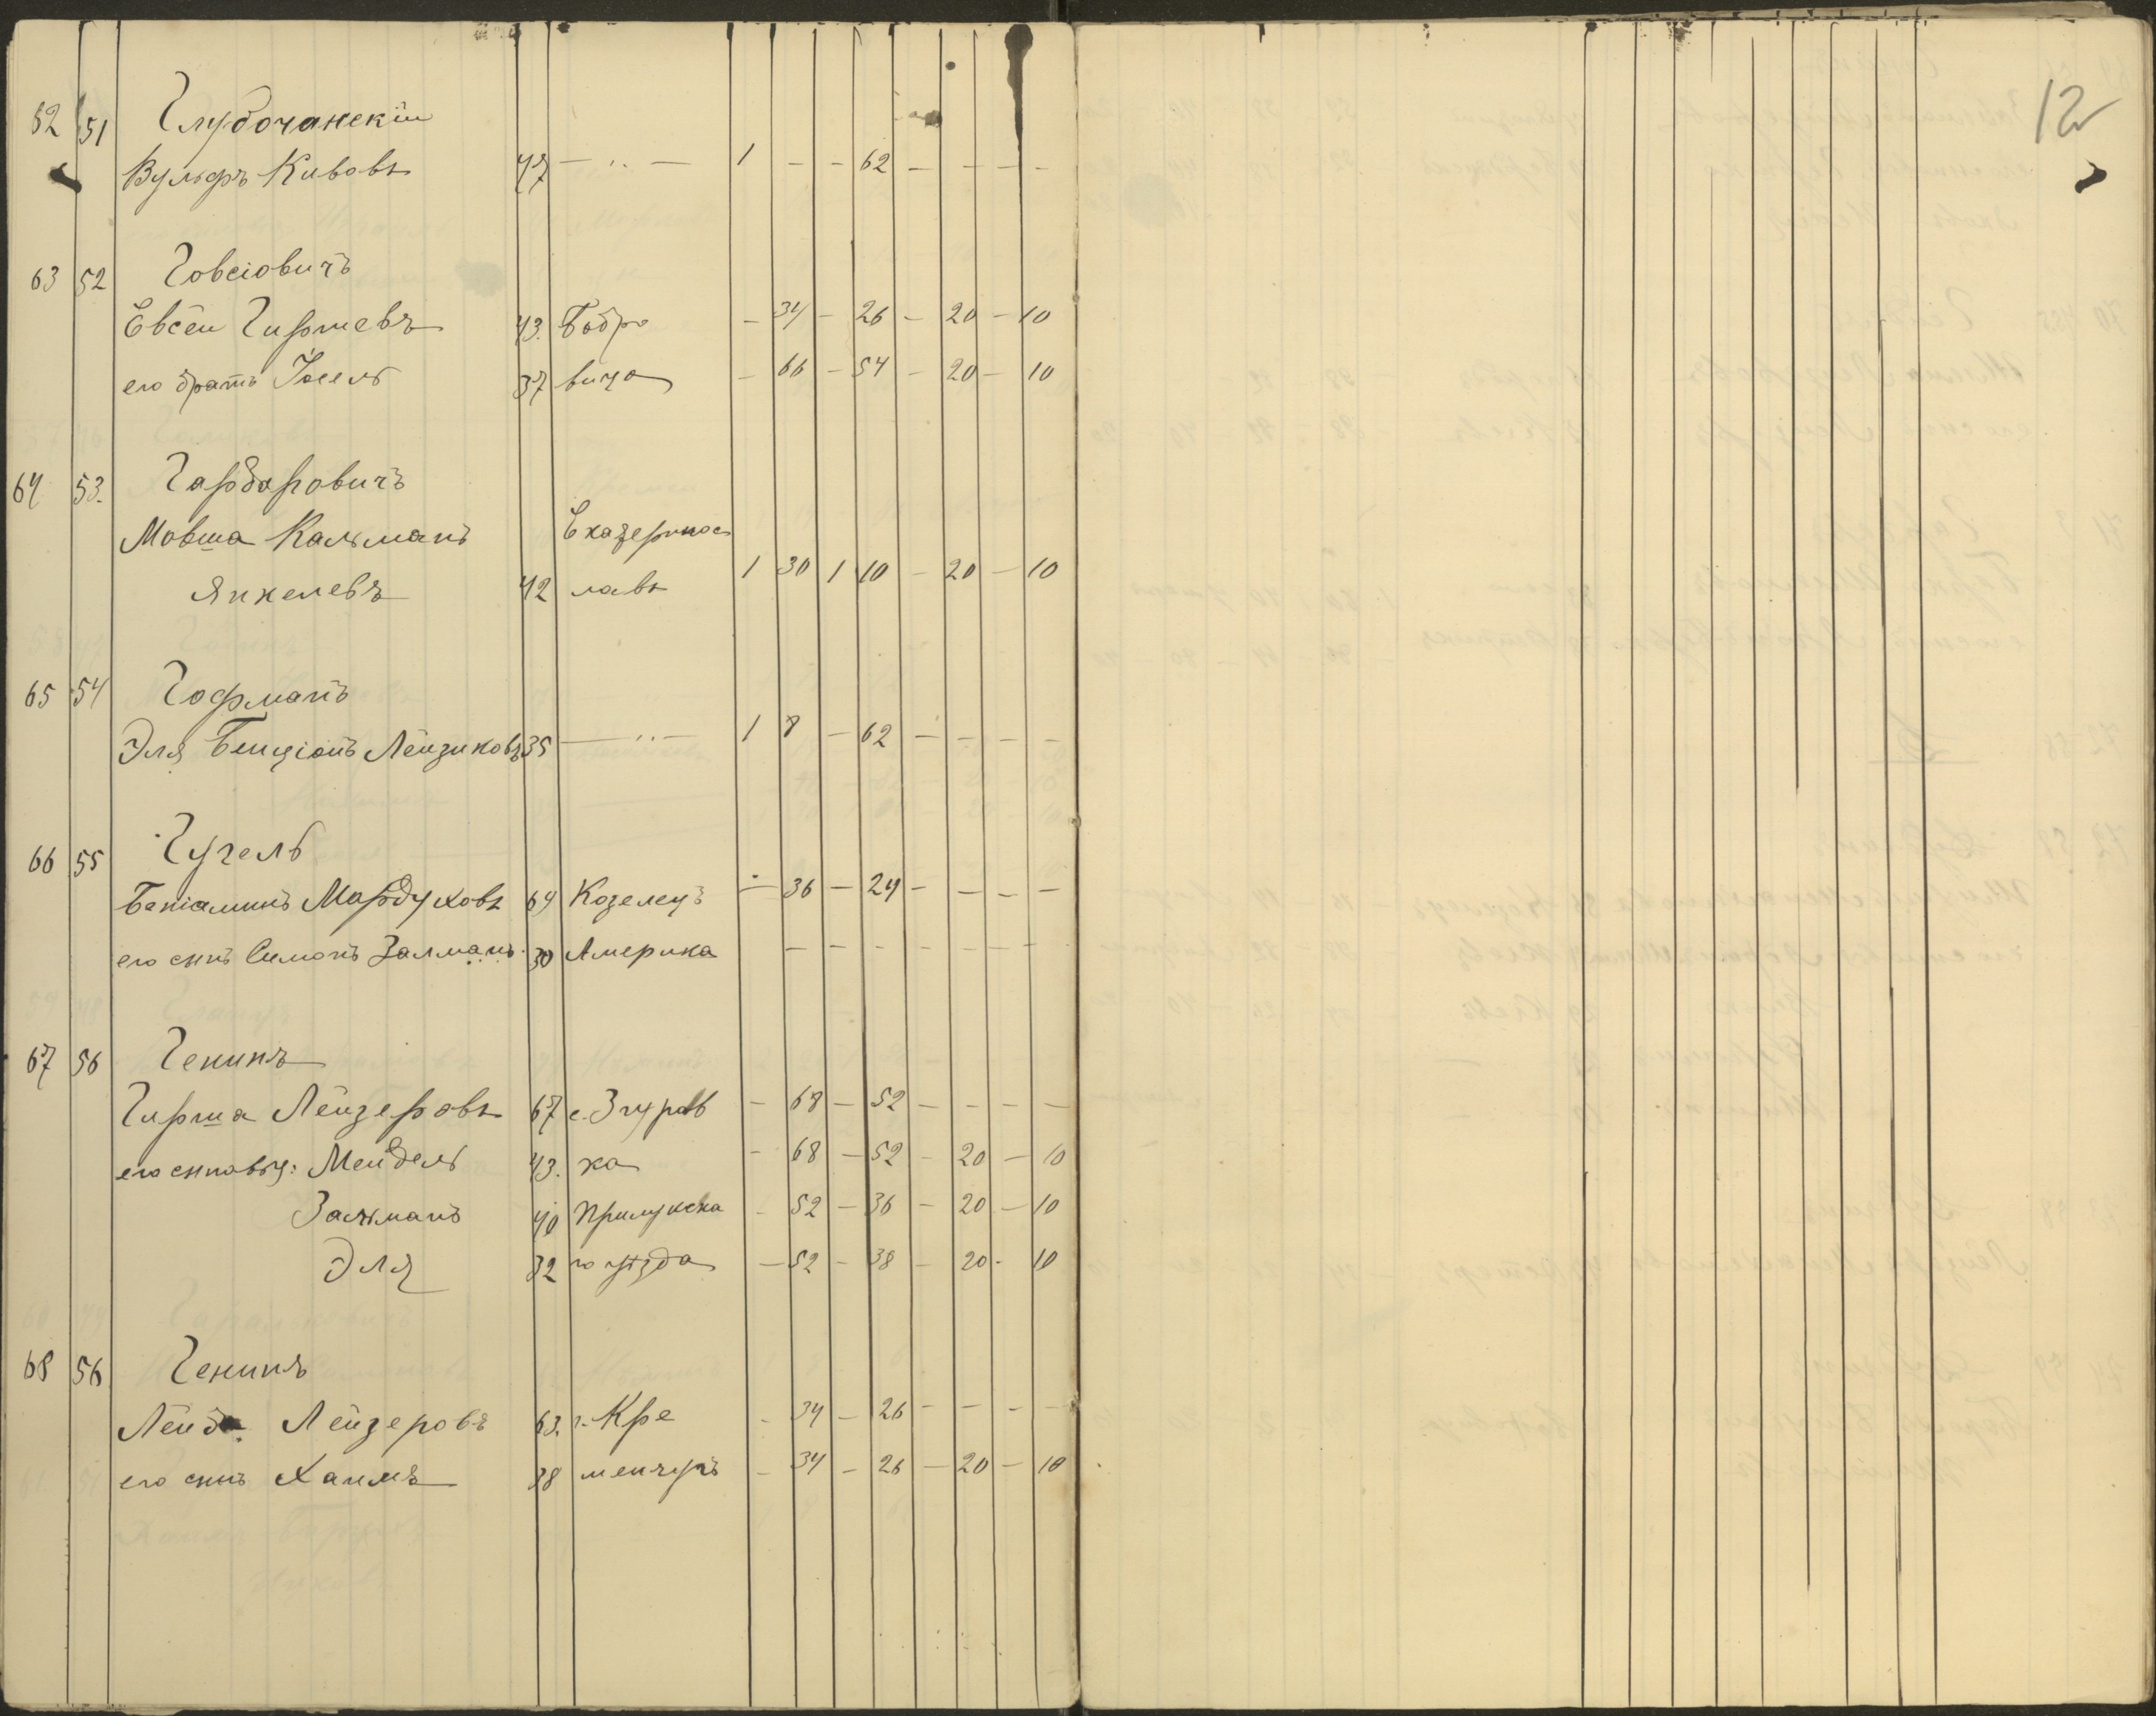 12
62 51 Глубочанскій
Вульфъ Кивовъ 47 — „ — 1 — — 62 — — — —
63 52 Говсіовичъ
Евсей Гиршевъ 43. Бобро — 34 — 26 — 20 — 10
его братъ Іосель 37 вица — 66 — 54 — 20 — 10
64 53. Гарбаровичъ
Мовша Кальманъ Екатеринос
Янкелевъ 42 лавъ 1 30 1 10 — 20 — 10
65 54 Гофманъ
Эля Бенціонъ Лейзиковъ 35 — „ — 1 8 — 62 — — — —
66 55 Гугель
Беніаминъ Мордуховъ 64 Козелецъ — 36 — 24 — — — —
его сынъ Симонъ Залманъ. 30 Америка — — — — — — —
67 56 Генинъ
Гирша Лейзеровъ 67 с. Згуров — 68 — 52 — — — —
его сыновья: Мендель 43. ка — 68 — 52 — 20 — 10
Залманъ 40 Прилукска — 52 — 36 — 20 — 10
Эля 32 го уѣзда — 52 — 38 — 20 — 10
68 56 Генинъ
Лейзеровъ 63. г. Кре — 34 — 26 — — — —
его сынъ Хаимъ 38 менчугъ — 34 — 26 — 20 — 10